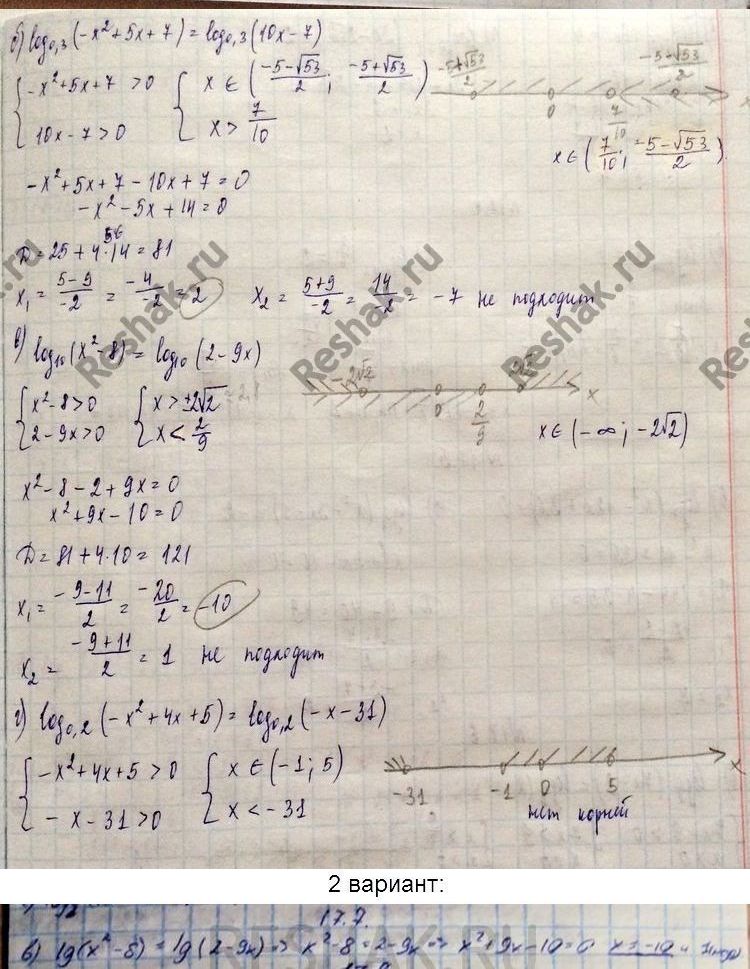 б) log₀,₃(-x²+5x+7) = log₀,₃(10x-7)
{ -x²+5x+7 >0 { x ∈ ( (-5-√53)/2 ; (-5+√53)/2 )
{ 10x-7>0 { x > 7/10
0 7/10 x
x ∈ ( 7/10 ; (-5-√53)/2 )
-x²+5x+7-10x+7=0
-x²-5x+14=0
D=25+4·14=81
56
x₁ = (5-9)/-2 = -4/-2 = 2 x₂ = (5+9)/-2 = 14/-2 = -7 не подходит
в) log₁₀(x²-8) = log₁₀(2-9x)
{ x²-8>0 { x>±2√2
{ 2-9x>0 { x< 2/9
-2√2 0 2/9 2√2 x
x ∈ (-∞; -2√2)
x²-8-2+9x=0
x²+9x-10=0
D=81+4·10=121
x₁ = (-9-11)/2 = -20/2 = -10
x₂ = (-9+11)/2 = 1 не подходит
г) log₀,₂(-x²+4x+5) = log₀,₂(-x-31)
{ -x²+4x+5>0 { x ∈ (-1; 5)
{ -x-31>0 { x<-31
-31 -1 0 5 x
нет корней
2 вариант:
17.7.
в) lg(x²-8) = lg(2-9x) => x²-8=2-9x => x²+9x-10=0 x=-10
Reshak.ru
Reshak.ru
Reshak.ru